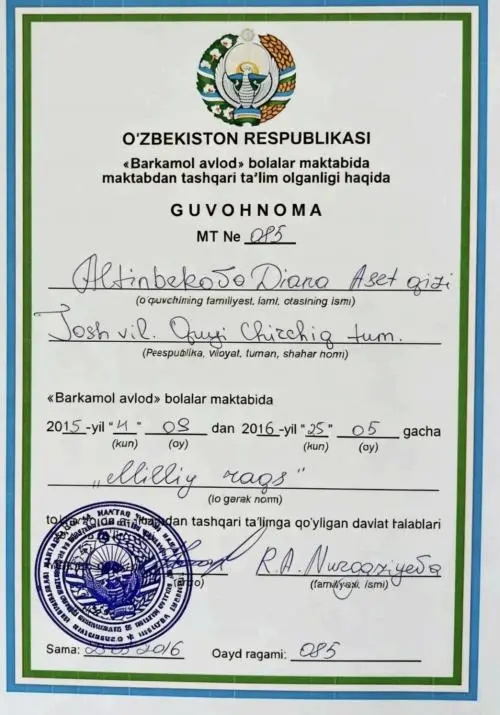 O'ZBEKISTON RESPUBLIKASI
«Barkamol avlod» bolalar maktabida
maktabdan tashqari ta'lim olganligi haqida
GUVOHNOMA
MT № 085
Altinbekova Diana Aset qizi
(o'quvchining familiyasi, ismi, otasining ismi)
Tosh vil. Quyi Chirchiq tum.
(Respublika, viloyat, tuman, shahar nomi)
«Barkamol avlod» bolalar maktabida
2015-yil "4" 09 dan 2016-yil "25" 05 gacha
(kun) (oy) (kun) (oy)
„Milliy raqs"
(to'garak nomi)
tashqari ta'limga qo'yilgan davlat talablari
R.A.
(familiyasi, ismi)
Sana: 2016 Qayd raqami: 085